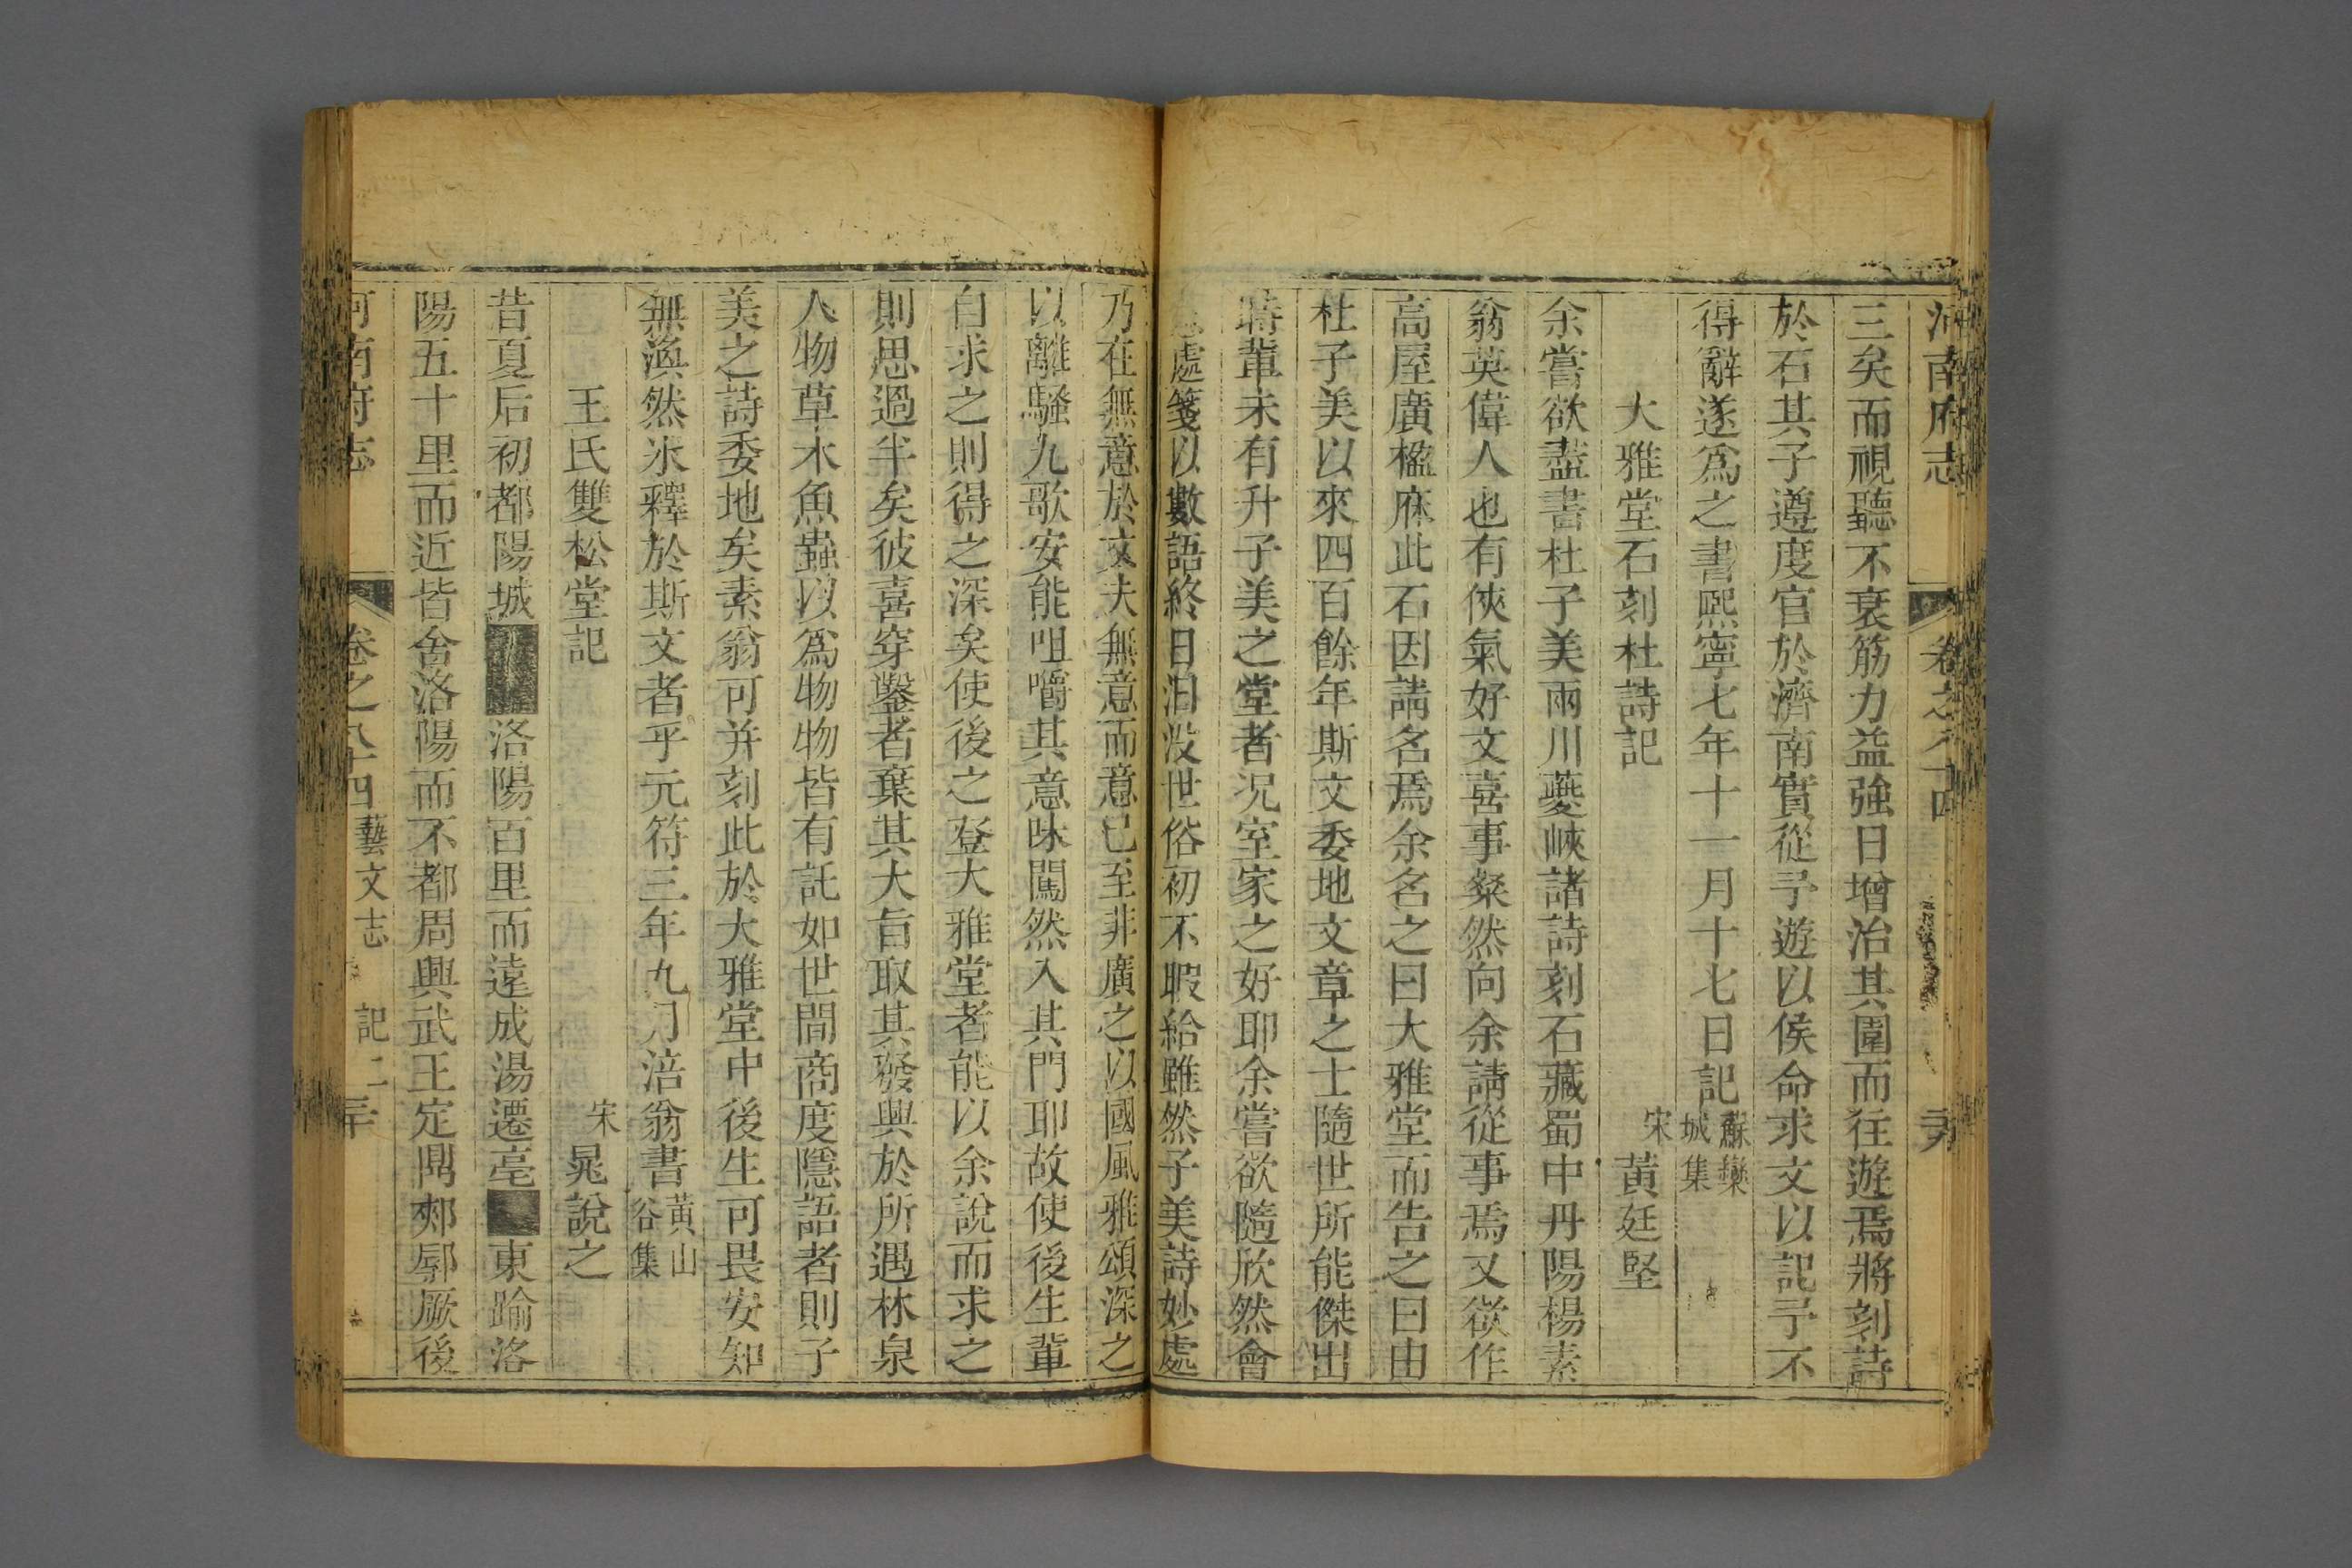 河南府志 卷之八十四 
三矣而視聽不衰筋力益強日增治其圃而往遊焉將刻詩
於石其子遵度官於濟南實從予遊以侯命求文以記予不
得辭遂爲之書熙寧七年十一月十七日記蘇欒城集
大雅堂石刻杜詩記 宋黃廷堅
余嘗欲盡書杜子美兩川夔峽諸詩刻石藏蜀中丹陽楊素
翁英偉人也有俠氣好文喜事粲然向余請從事焉又欲作
高屋廣楹庥此石因請名焉余名之曰大雅堂而告之曰由
杜子美以來四百餘年斯文委地文章之士隨世所能傑出
時輩未有升子美之堂者況室家之好耶余嘗欲隨欣然會
處箋以數語終日汩没世俗初不暇給雖然子美詩妙處
乃在無意於文夫無意而意已至非廣之以國風雅頌深之
以離騷九歌安能咀嚼其意味闖然入其門耶故使後生輩
自求之則得之深矣使後之登大雅堂者能以余說而求之
則思過半矣彼喜穿鑿者棄其大旨取其發興於所遇林泉
人物草木魚蟲以爲物物皆有託如世間商度隱語者則子
美之詩委地矣素翁可并刻此於大雅堂中後生可畏安知
無渙然氷釋於斯文者乎元符三年九月涪翁書黃山谷集
王氏雙松堂記 宋晁說之
昔夏后初都陽城洛陽百里而遠成湯遷亳東踰洛
陽五十里而近皆舍洛陽而不都周興武王定鼎郟鄏厥後
河南府志 卷之八十四 藝文志 記二 三十